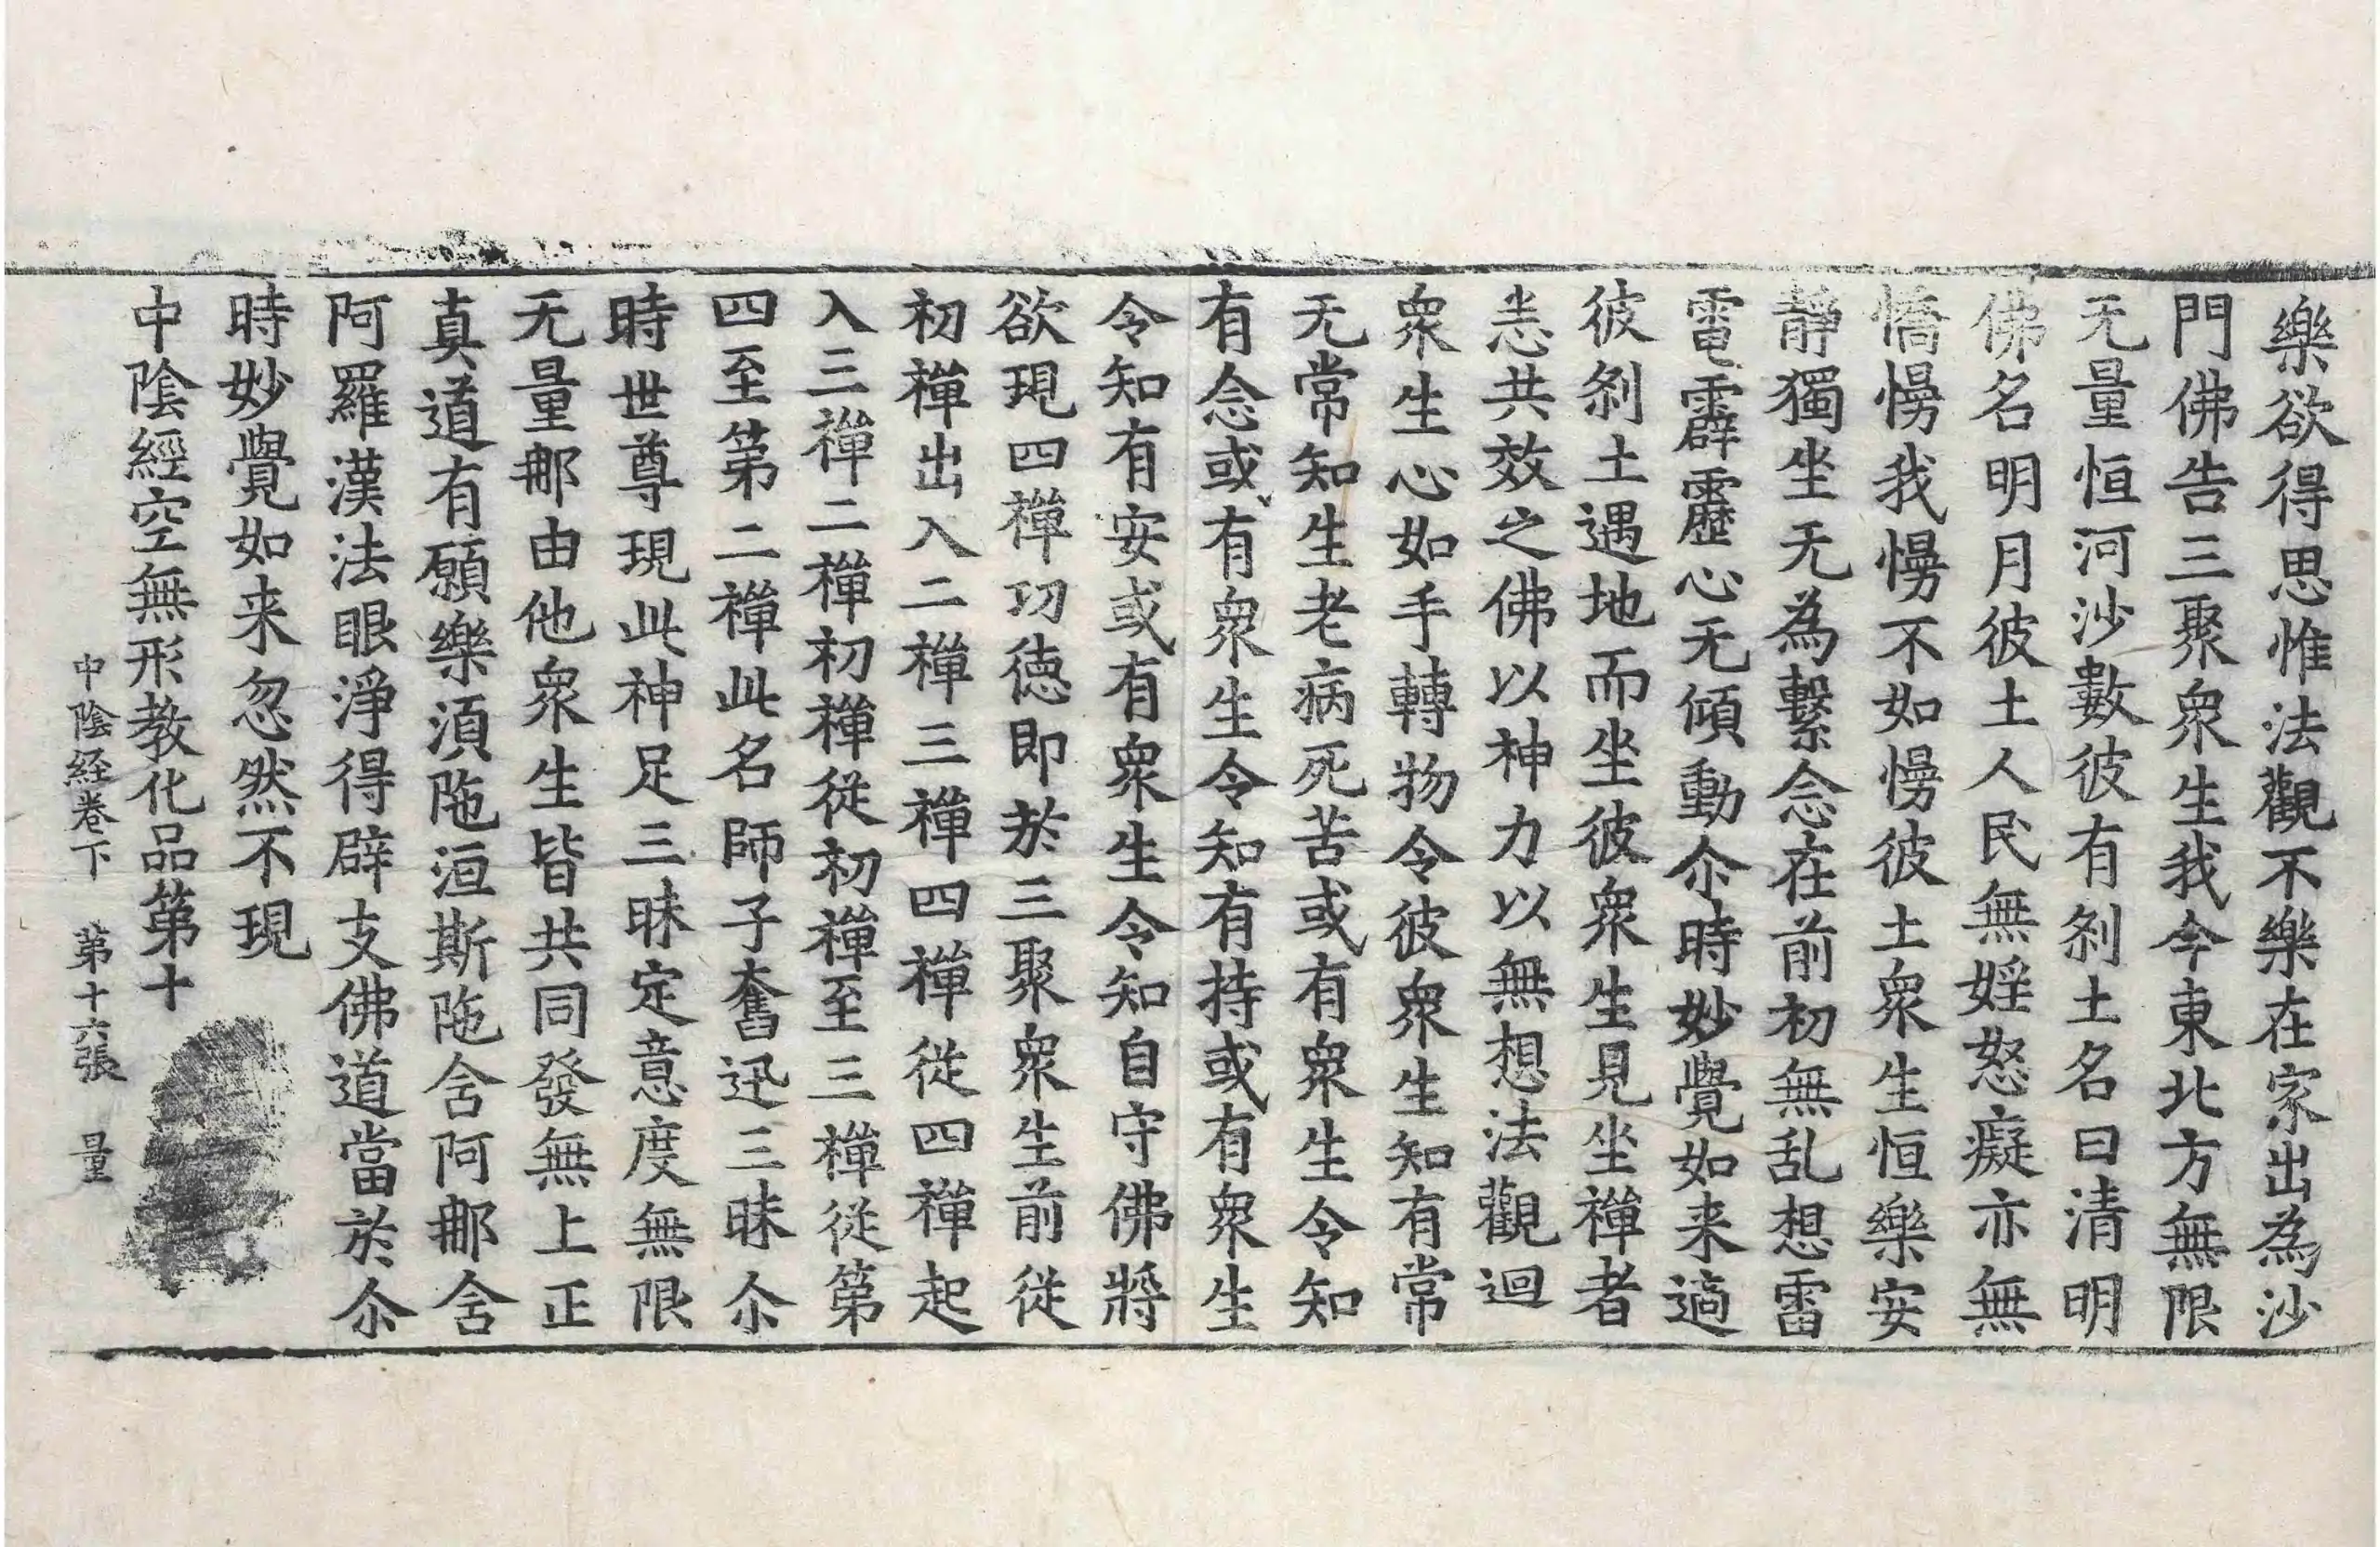 樂欲得思惟法觀不樂在家出為沙
門佛告三聚衆生我今東北方無限
无量恒河沙數彼有刹土名曰清明
佛名明月彼土人民無婬怒癡亦無
憍慢我慢不如慢彼土衆生恒樂安
靜獨坐无為繫念在前初無乱想雷
電霹靂心无傾動尒時妙覺如来適
彼刹土遇地而坐彼衆生見坐禪者
恙共效之佛以神力以無想法觀迴
衆生心如手轉物令彼衆生知有常
无常知生老病死苦或有衆生令知
有念或有衆生令知有持或有衆生
令知有安或有衆生令知自守佛將
欲現四禪功德即於三聚衆生前從
初禪出入二禪三禪四禪從四禪起
入三禪二禪初禪從初禪至三禪從第
四至第二禪此名師子奮迅三昧尒
時世尊現此神足三昧定意度無限
无量那由他衆生皆共同發無上正
真道有願樂湏陁洹斯陁含阿那含
阿羅漢法眼淨得辟支佛道當於尒
時妙覺如来忽然不現
中陰經空無形教化品第十
中陰経卷下　第十六張　量